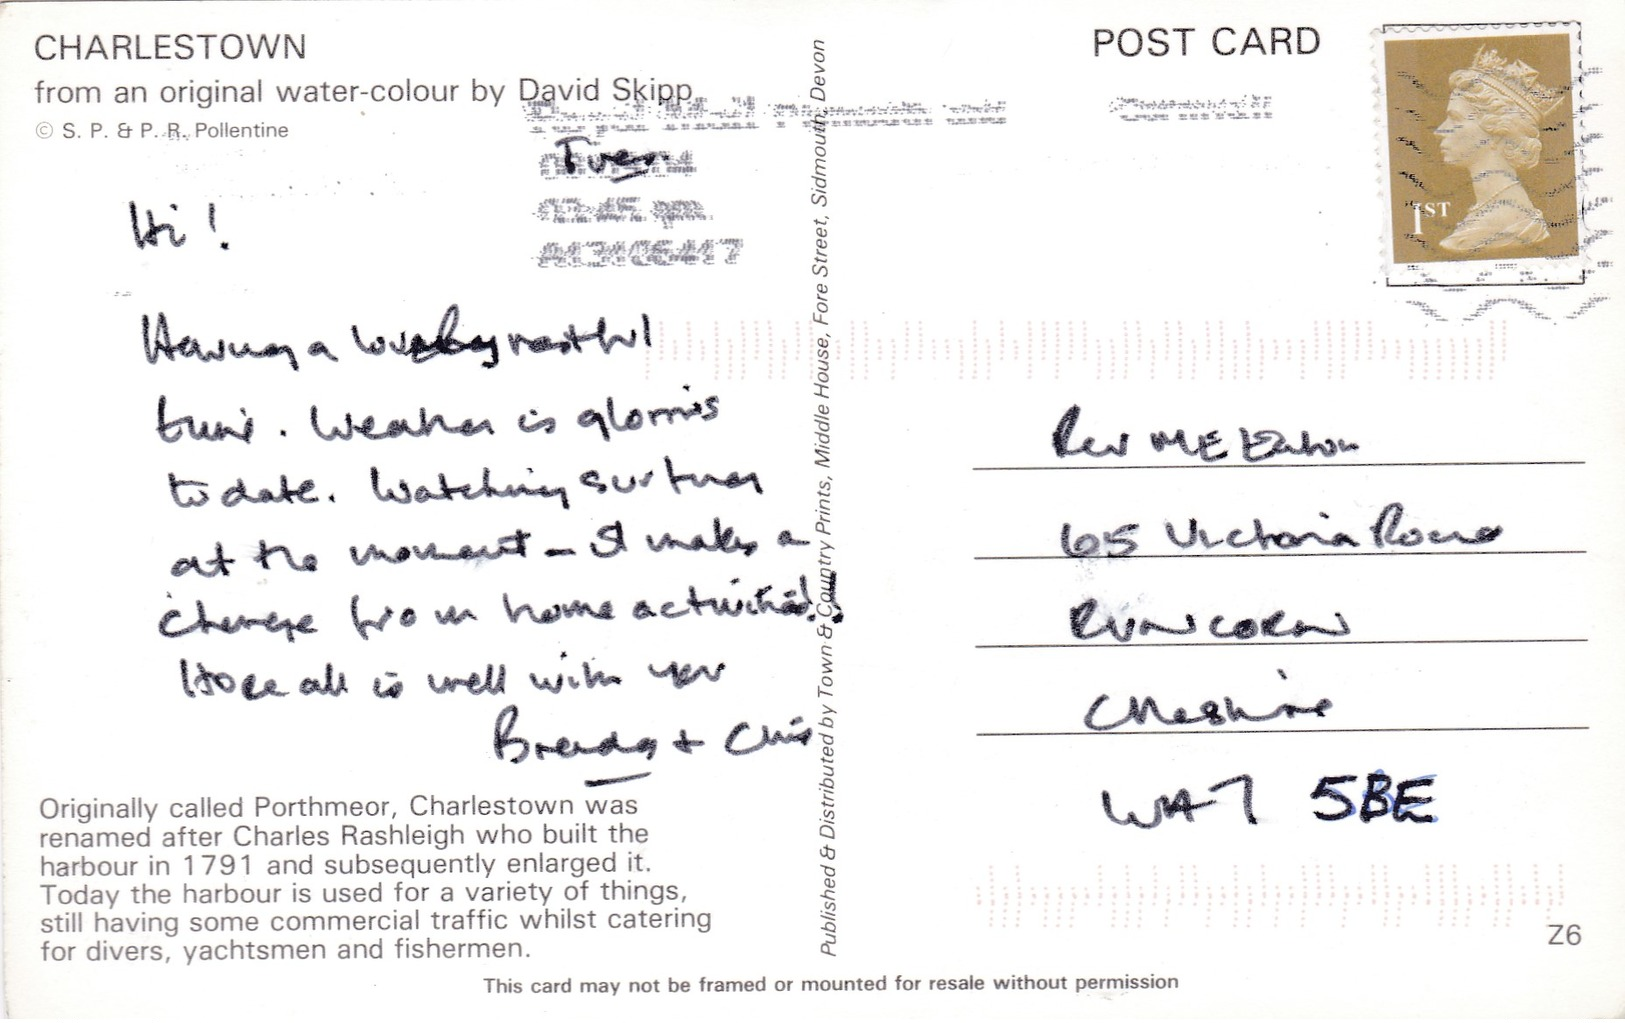 CHARLESTOWN
from an original water-colour by David Skipp
© S. P. & P. R. Pollentine
POST CARD
1ST
Tues.
Hi!
Having a lovely restful
time. Weather is glorious
to date. Watching surfing
at the moment – It makes a
change from home activities!!
Hope all is well with you
Brenda + Chris
Originally called Porthmeor, Charlestown was
renamed after Charles Rashleigh who built the
harbour in 1791 and subsequently enlarged it.
Today the harbour is used for a variety of things,
still having some commercial traffic whilst catering
for divers, yachtsmen and fishermen.
Published & Distributed by Town & Country Prints, Middle House, Fore Street, Sidmouth, Devon
Rev M E Eaton
65 Victoria Road
RUNCORN
Cheshire
WA7 5BE
Z6
This card may not be framed or mounted for resale without permission